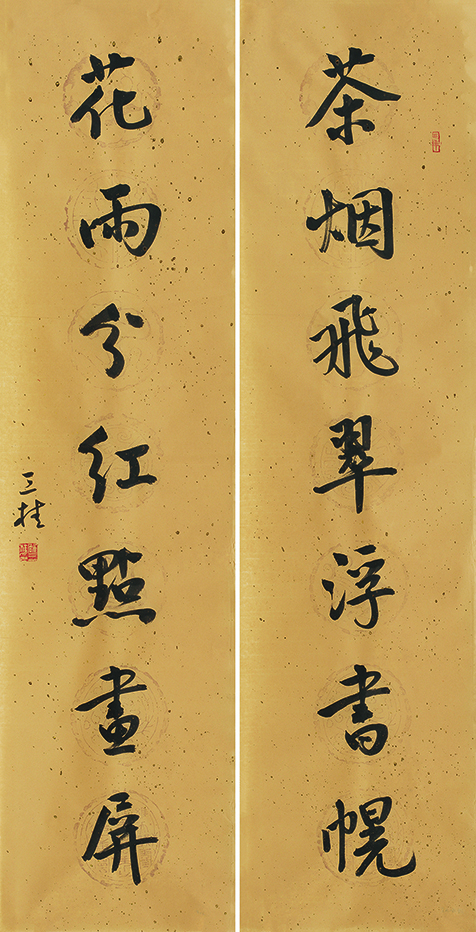 茶烟飛翠浮書幌
花雨分紅點畫屏
三桂